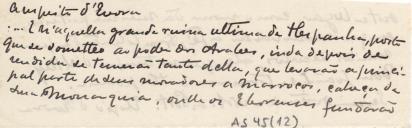 a respeito d'Evora
... E n'aquella grande ruina ultima de Hespanha, posto
que se someteo ao poder dos Arabes, inda depois de
rendida se temerão tanto della, que levarão a princi-
pal parte de seus moradores a Marrocos, cabeça da
sua Monarquia, onde os Eborenses fundarão
AS 45 (12)